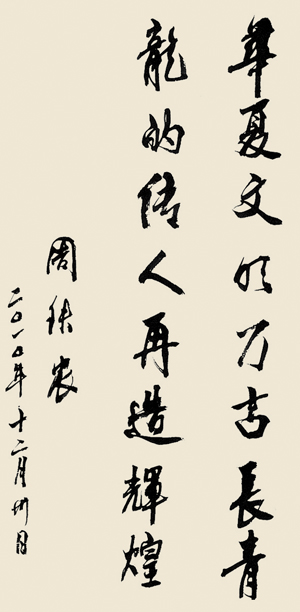 華夏文明万古長青
龍的传人再造輝煌
周铁农
二〇一〇年十二月卅日